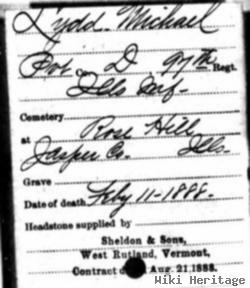 Lydd, Michael
Pvt Co. D 97th Regt.
Ills Inf.
Cemetery
at Rose Hill
Jasper Co. Ills.
Grave
Date of death Feby 11-1888.
Headstone supplied by
Sheldon & Sons,
West Rutland, Vermont,
Contract Aug. 21, 1888.
Wiki Heritage